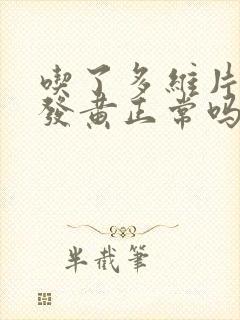 喫了多維片
發黃正常嗎
半截筆